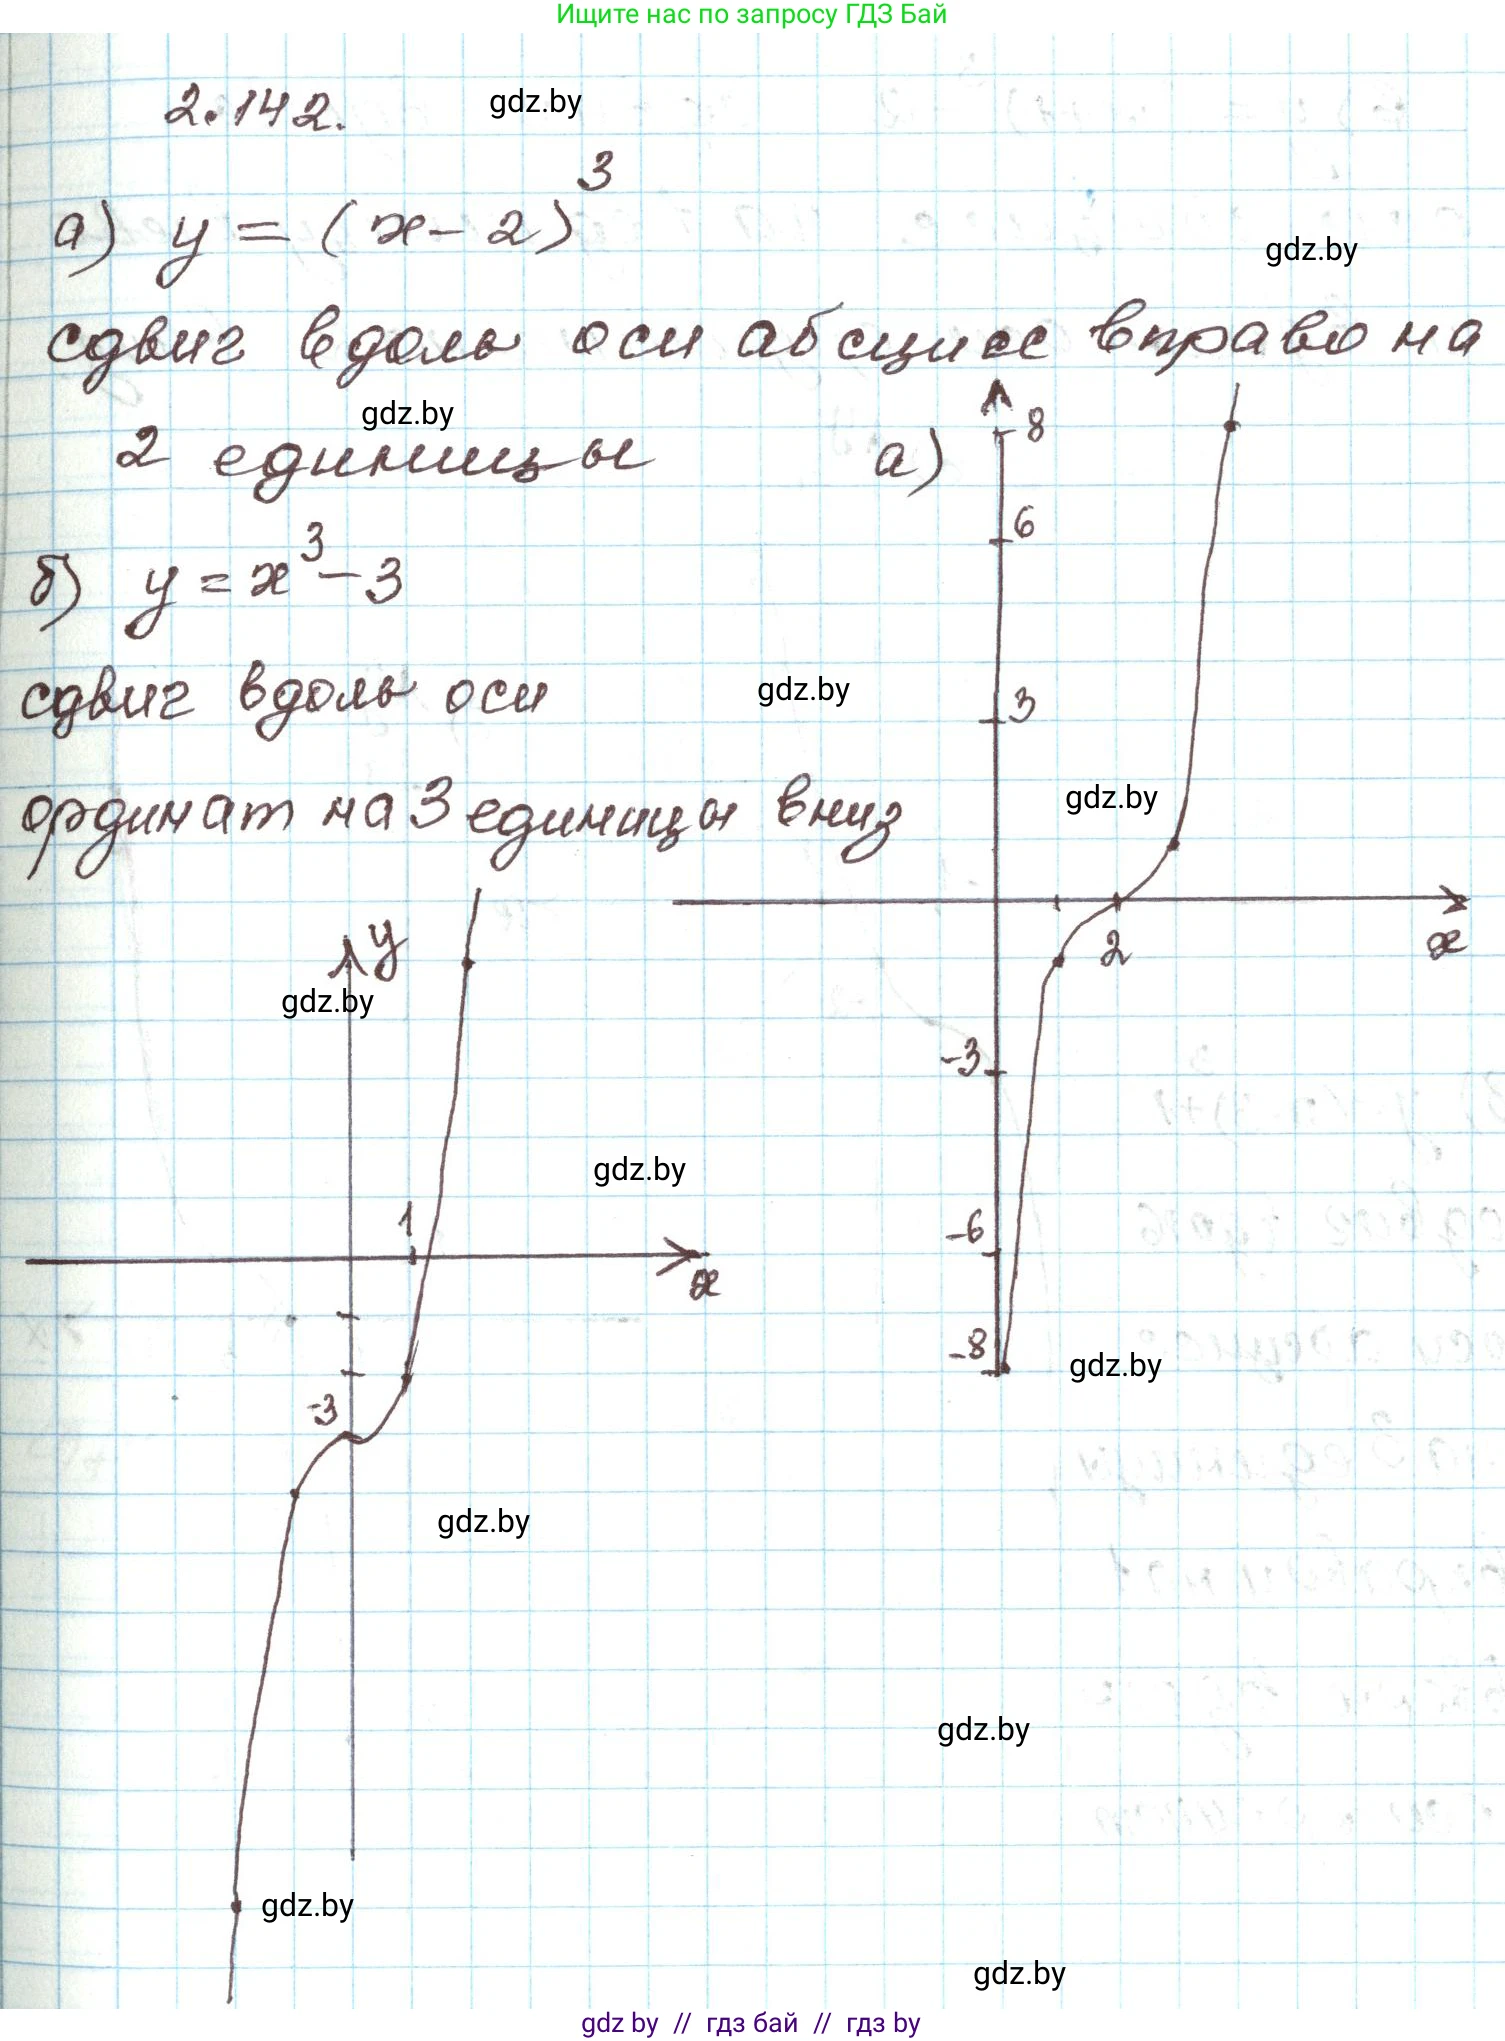 Ищите нас по запросу ГДЗ Бай
2.142.
gdz.by
а) y = (x - 2)³
gdz.by
сдвиг вдоль оси абсцисс вправо на
gdz.by
2 единицы
а)
8
6
б) y = x³ - 3
сдвиг вдоль оси
gdz.by
3
ординат на 3 единицы вниз
gdz.by
y
2
x
gdz.by
-3
gdz.by
1
-6
x
-8
gdz.by
-3
gdz.by
gdz.by
gdz.by
gdz.by
gdz.by // гдз бай // гдз by